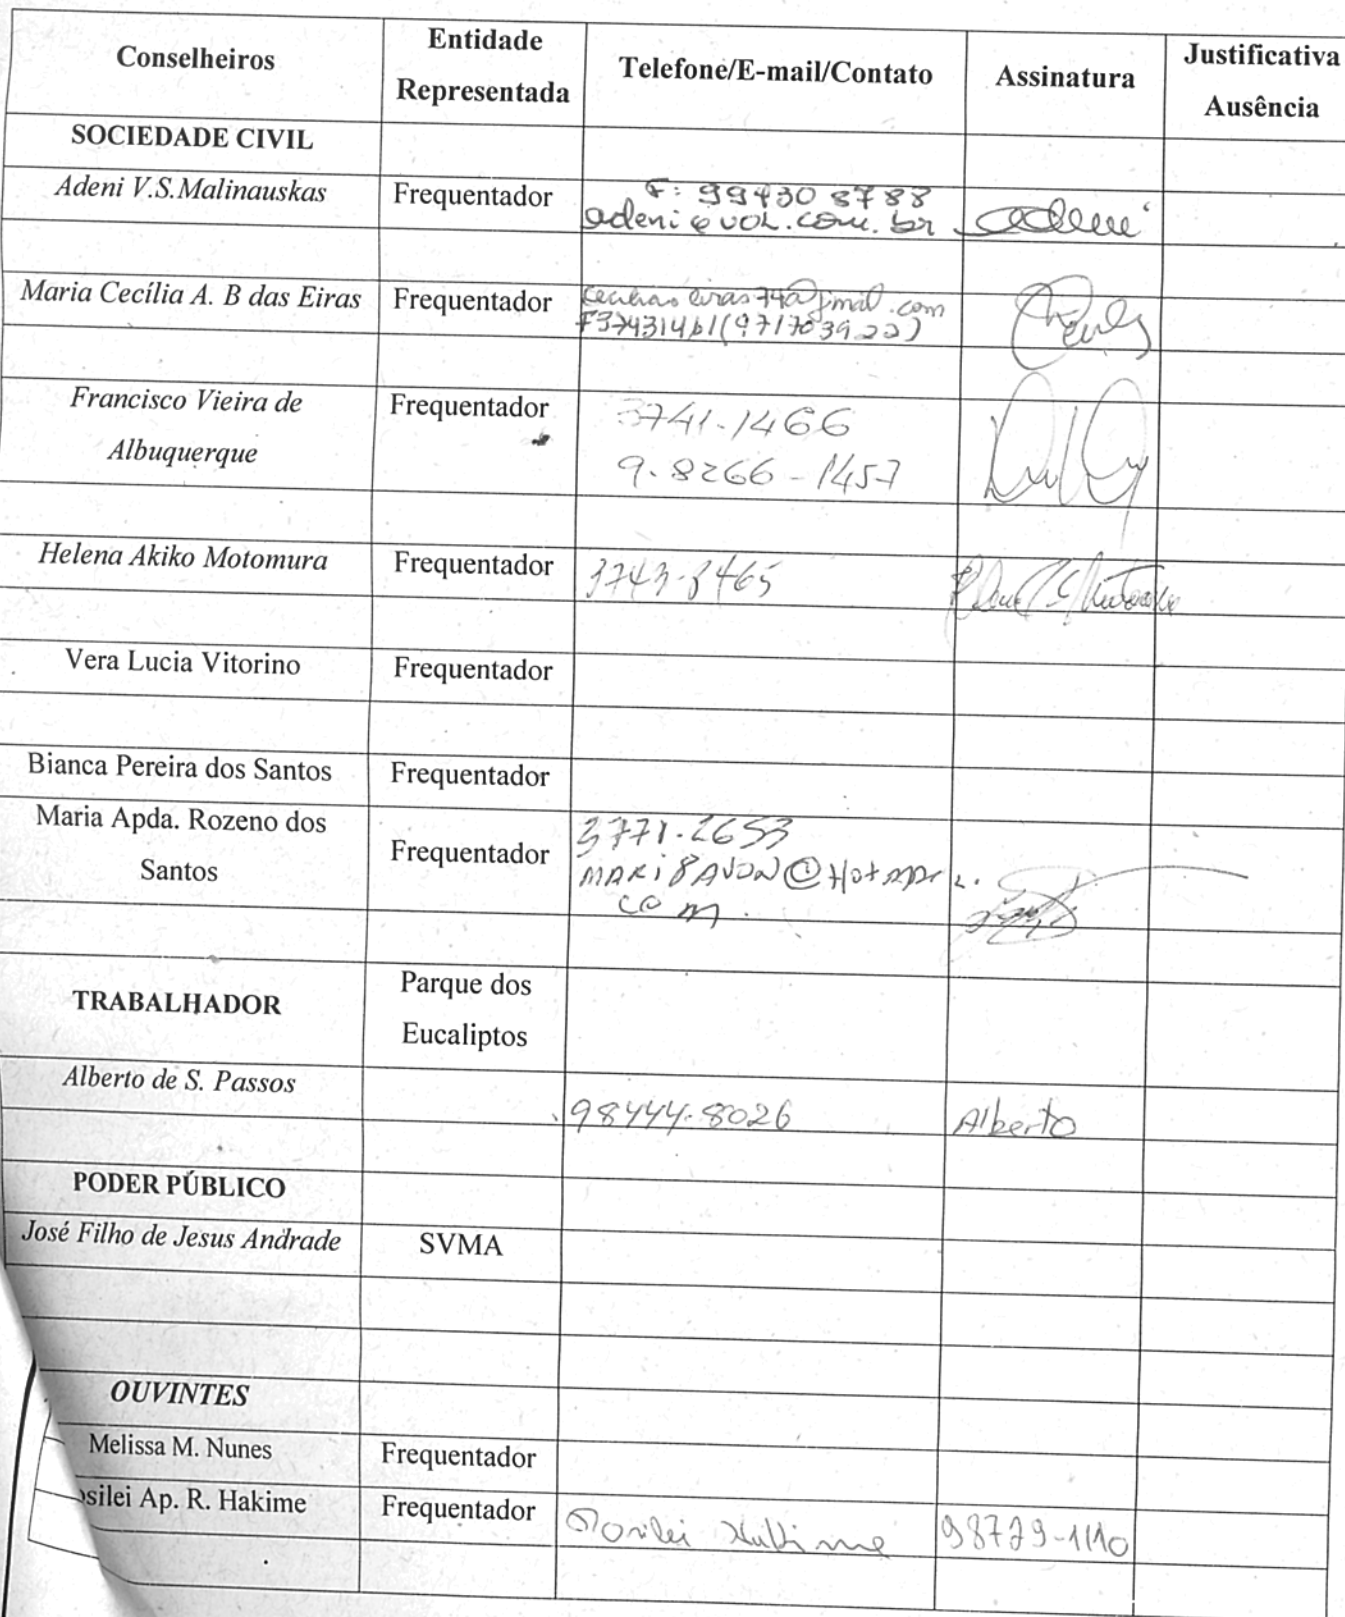 Conselheiros
Entidade
Representada
Telefone/E-mail/Contato
Assinatura
Justificativa
Ausência
SOCIEDADE CIVIL
Adeni V.S.Malinauskas
Frequentador
F: 99430 8788
adeni@uol.com.br
Adeni
Maria Cecília A. B das Eiras
Frequentador
F37431461(971703922)
Francisco Vieira de
Albuquerque
Frequentador
3741-1466
9.8266-1457
Helena Akiko Motomura
Frequentador
3743-8465
Vera Lucia Vitorino
Frequentador
Bianca Pereira dos Santos
Frequentador
Maria Apda. Rozeno dos
Santos
Frequentador
3771-2653
com
TRABALHADOR
Parque dos
Eucaliptos
Alberto de S. Passos
98444-8026
Alberto
PODER PÚBLICO
José Filho de Jesus Andrade
SVMA
OUVINTES
Melissa M. Nunes
Frequentador
osilei Ap. R. Hakime
Frequentador
Rosilei Hakime
98779-1110